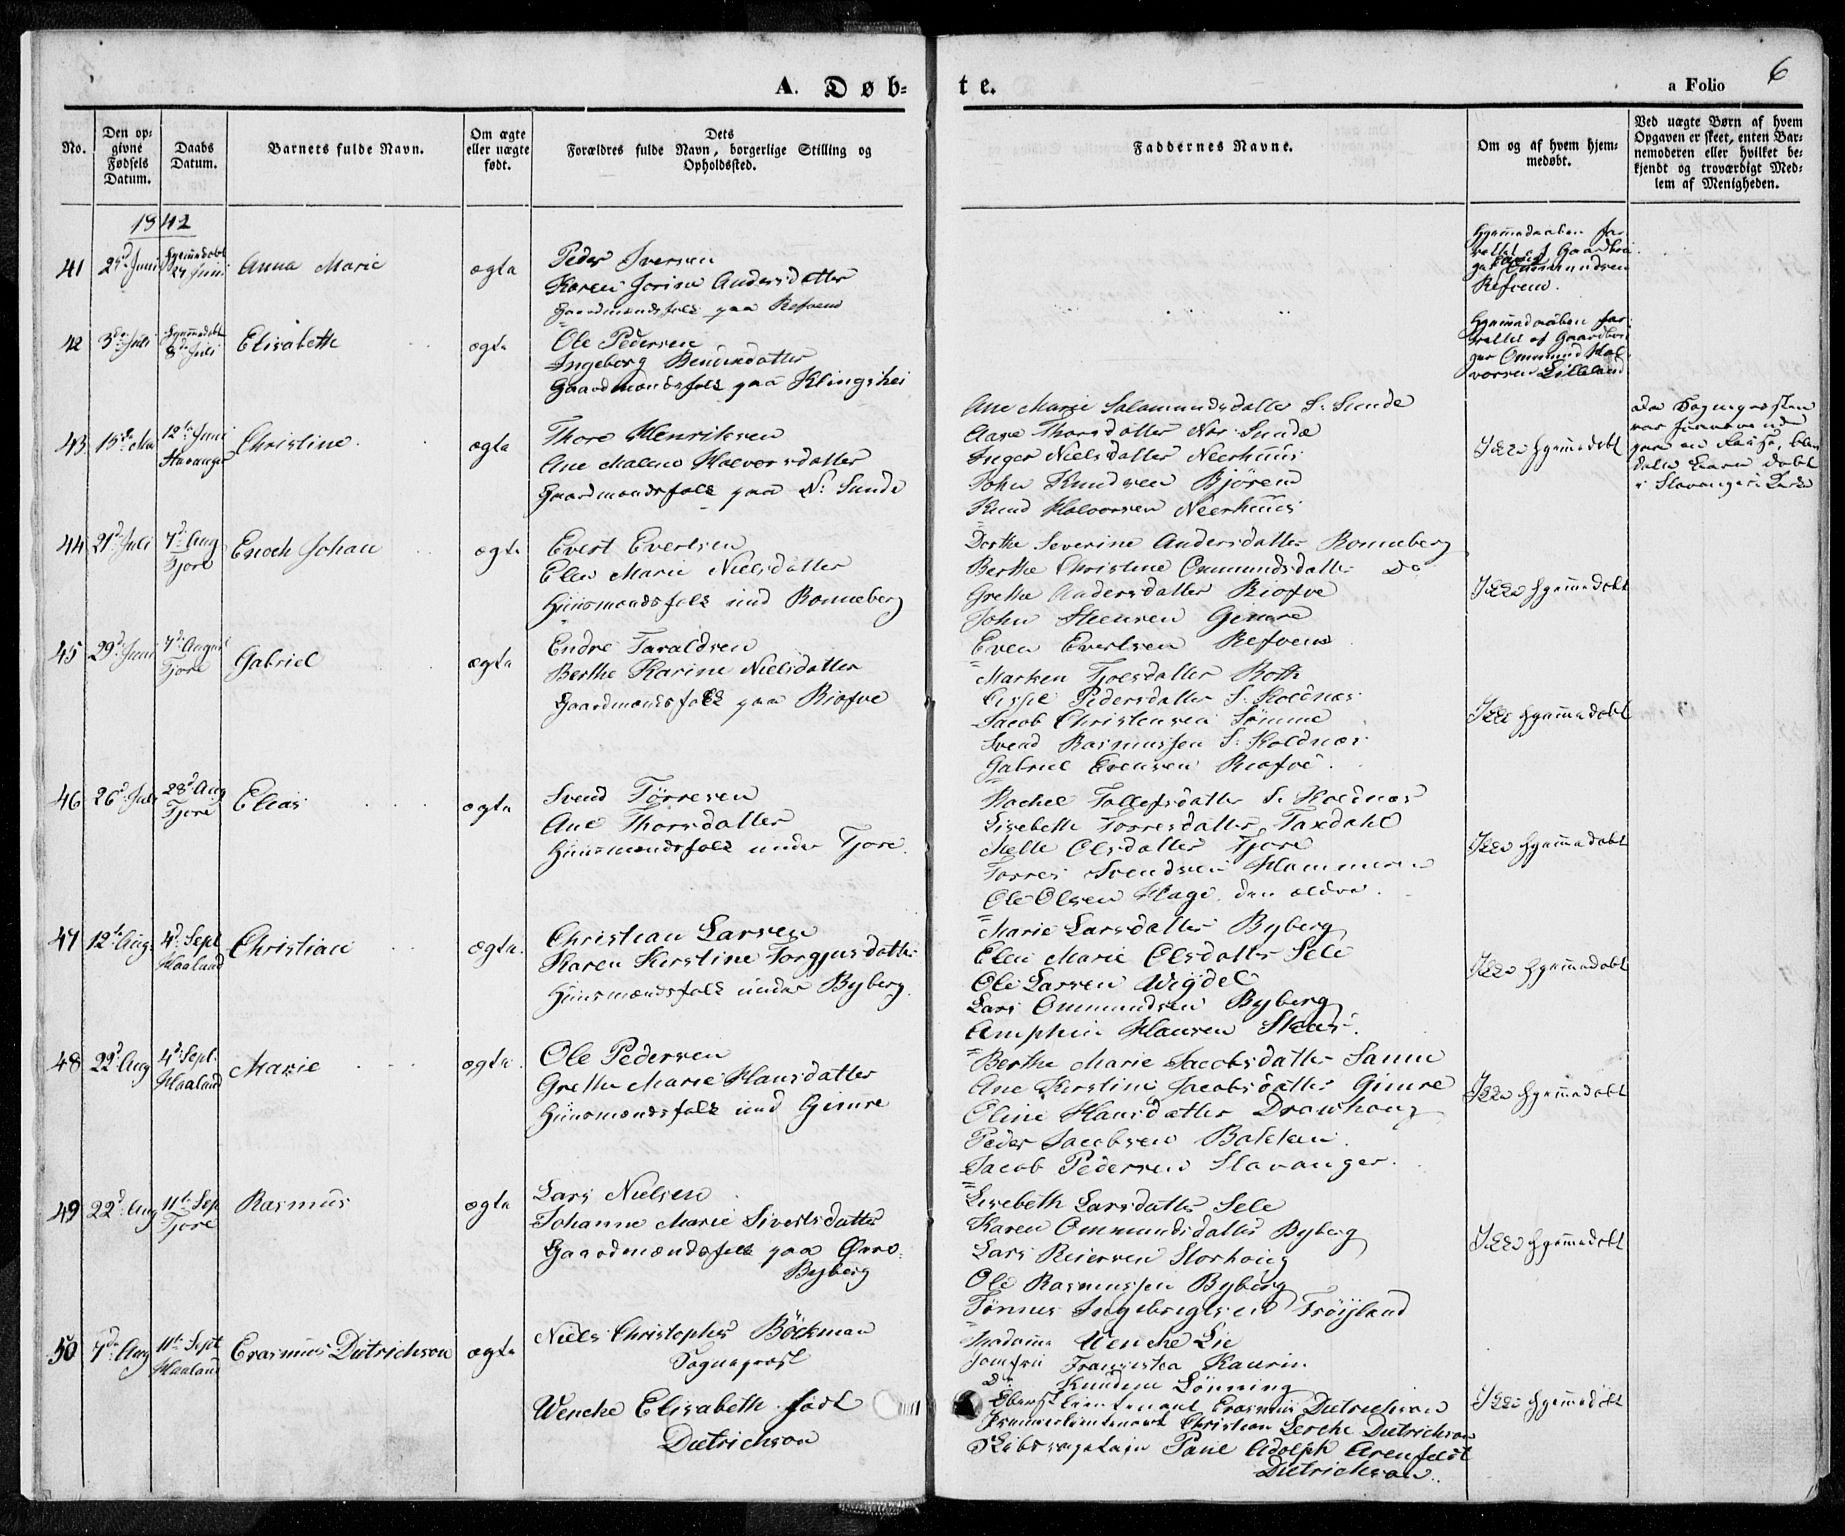 A. Døb-
te.
a Folio 6
No.
Den opgivne Fødsels Datum.
Daabs Datum.
Barnets fulde Navn.
Om ægte eller uægte født.
Dets
Forældres fulde Navn, borgerlige Stilling og Opholdssted.
Faddernes Navne.
Om og af hvem hjemmedøbt.
Ved uægte Børn af hvem Opgaven er skeet, enten Barnemoderen eller hvilket bekjendt og troværdigt Medlem af Menigheden.
1842
41 Juni Hjemmedøbt Juni Anna Marie ægte
Peder Iversen
Karen Jorine Andersdatter
Gaardmandsfolk paa Refvem
Hjemmedaaben forrettet af Gaardbruger Ommundsen Refvem.
42 3d Juli Hjemmedøbt 8d Juli Elisabeth ægte
Ole Pedersen
Ingeborg
Gaardmandsfolk paa Klingshei
Hjemmedaaben forrettet af Gaardbruger Ommund Halvorsen Lilleland
43 15de Mai 12te Juni Stavanger Christine ægte
Thore Henriksen
Ane Malene Halvorsdatter
Gaardmandsfolk paa N: Sunde
Ane Marie Salamundsdatter S: Sunde
Aase Thorsdatter Nor Sunde
Inger Nielsdatter Neerhuus
John Knudsen Bjørem
Knud Halvorsen Neerhuus
Ikke hjemmedøbt
da Sognepræsten var fraværende
paa en Reise, blev
dette Barn døbt
i Stavanger Kirke
44 21d Juli 7d Aug Tjore Enoch Johan ægte
Evert Evertsen
Elen Marie Nielsdatter
Huusmandsfolk und Ronneberg
Dorthe Severine Andersdatter Ronneberg
Berthe Christine Ommundsdatter Do
Grethe Andersdatter Riofve
John Steensen Gimre
Even Evertsen Refvem
Ikke hjemmedøbt
45 29d Juni 7d August Tjore Gabriel ægte
Endre Taraldsen
Berthe Karine Nielsdatter
Gaardmandsfolk paa Riofve
Marken Tjoesdatter Roth
Sissel Pedersdatter S: Koldnæs
Jacob Christensen Sømme
Svend Rasmussen S: Koldnæs
Gabriel Evensen Riofve.
Ikke hjemmedøbt
46 26d Juli 28d Aug Tjore Elias ægte
Svend Tørresen
Ane Thorsdatter
Huusmandsfolk under Tjore.
Rachel Tollefsdatter S. Koldnæs
Lisebeth Torresdatter Taxdahl
Mette Olsdatter Tjore
Torres Svendsen Hammeren
Ole Olsen Hage den ældre.
Ikke hjemmedøbt
47 12te Aug: 4d Sept Haaland Christian ægte.
Christian Larsen
Karen Kirstine Torgjusdatter
Huusmandsfolk under Byberg.
Marie Larsdatter Byberg
Elen Marie Olsdatter Sele
Ole Larsen Wigdel
Lars Ommundsen Byberg
Amphin Hansen Skaas.
Ikke hjemmedøbt
48 22d Aug 4d Sept. Haaland Marie ægte.
Ole Pedersen
Grethe Marie Hansdatter
Huusmandsfolk und Gimre
Berthe Marie Jacobsdatter Sanne
Ane Kirstine Jacobsdatter Gimre
Eline Hansdatter
Peder Jacobsen Bakken.
Jacob Pedersen Stavanger.
Ikke hjemmedøbt
49 22d Aug 11te Sep Tjore Rasmus ægte
Lars Nielsen
Johanne Marie Sivertsdatter
Gaardmandsfolk paa Øvre-
Byberg
Lisebeth Larsdatter Sele
Karen Ommundsdatter Byberg
Lars Reiersen Storhoug
Ole Rasmussen Byberg
Tønnes Ingebrigtsen Frøiland
Ikke hjemmedøbt
50 7de Aug 11te Sept Haaland Erasmus Dietrichson ægte
Niels Christopher Böckman
Sognepræst
Wencke Elisabeth født
Dietrichson
Madame Wenche Lie
Jomfru Francisca Kaurin
Do Lönning
Oberstlieutenant Erasmus Dietrichson
Premierlieutenant Christian Lerche Dietrichson
Skibscapitain Paul Adolph Arenfeldt
Dietrichson.
Ikke hjemmedøbt